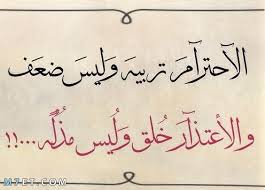 الآحترآمَ تربيه وَليسَ ضعَف
والأعتذآر خُلق وَلُيس مذُلَه...!!
M7ET.COM